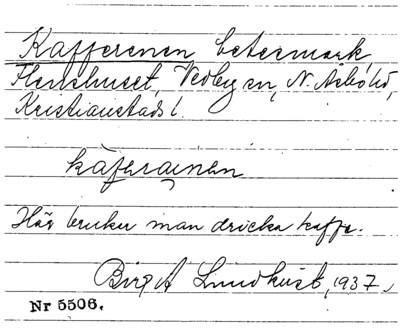 Kafferenen, betesmark,
Flenshuset, Vedby sn, N. Åsbo hd,
Kristianstads l.
kàferainen
Här brukar man dricka kaffe.
Birg A Lundkvist, 1937.
Nr 5506.